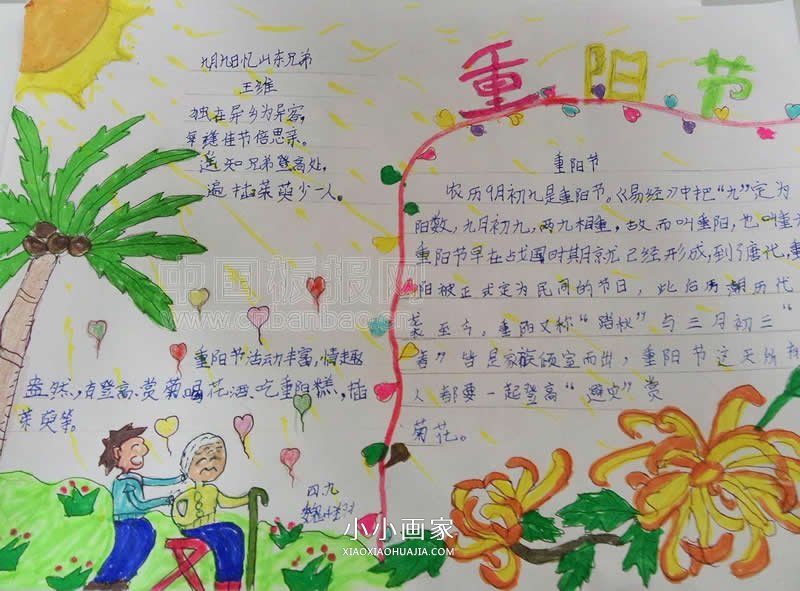 重阳节
九月九日忆山东兄弟
王维
独在异乡为异客，
每逢佳节倍思亲。
遥知兄弟登高处，
遍插茱萸少一人。
重阳节
农历9月初九是重阳节。《易经》中把“九”定为
阳数，九月初九，两九相重，故而叫重阳，也叫重
重阳节早在战国时期就已经形成，到了唐代，重
阳被正式定为民间的节日，此后历朝历代
袭至今，重阳又称“踏秋”与三月初三“
春”皆是家族倾室而出，重阳节这天所有
人都要一起登高“避灾”赏
菊花。
重阳节活动丰富，情趣
盎然，有登高、赏菊、喝花酒、吃重阳糕，插
茱萸等。
四九
中国板报网
www.cnbanbao.cn
小小画家
XIAOXIAOHUAJIA.COM